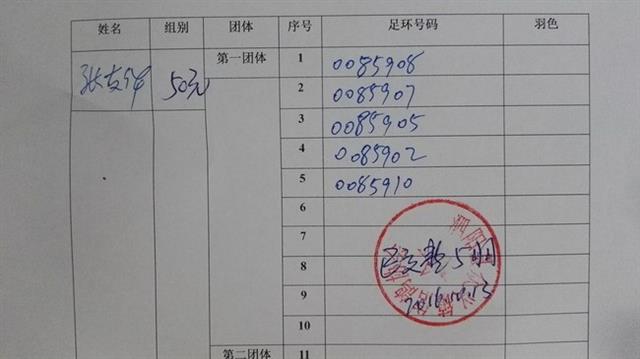 姓名 组别 团体 序号 足环号码 羽色
张 50元 第一团体 1 0085908
2 0085907
3 0085905
4 0085902
5 0085910
6
7
8
9
10
第二团体 11